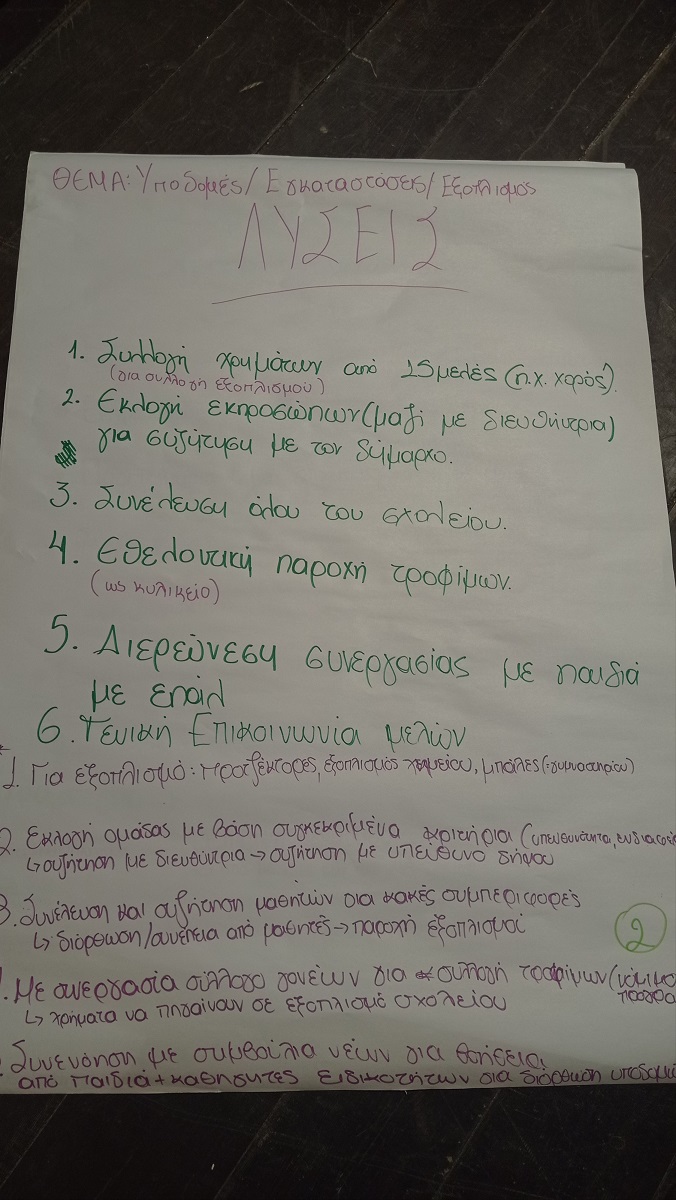 ΘΕΜΑ: Υποδομές/ Εγκαταστάσεις/ Εξοπλισμός
ΛΥΣΕΙΣ
1. Συλλογή χρημάτων από 15μελές (π.χ. χορός).
(για συλλογή εξοπλισμού)
2. Εκλογή εκπροσώπων (μαζί με διευθύντρια)
για συζήτηση με τον δήμαρχο.
3. Συνέλευση όλου του σχολείου.
4. Εθελοντική παροχή τροφίμων.
(ως κυλικείο)
5. Διερεύνεση συνεργασίας με παιδιά
με επαλ
6. Γενική Επικοινωνία μελών
1. Για εξοπλισμό: προτζέκτορες, εξοπλισμός χημείου, μπάλες (γυμναστηρίου)
2. Εκλογή ομάδας με βάση συγκεκριμένα κριτήρια (υπευθυνότητα,
↳ συζήτηση με διευθύντρια → συζήτηση με υπεύθυνο δήμου
3. Συνέλευση και συζήτηση μαθητών για κακές συμπεριφορές
↳ διόρθωση/συνέπεια από μαθητές → παροχή εξοπλισμού
2
. Με συνεργασία σύλλογο γονέων για συλλογή τροφίμων
↳ χρήματα να πηγαίνουν σε εξοπλισμό σχολείου
Συνενόηση με συμβούλια νέων για
από παιδιά + καθηγητές ειδικοτήτων για διόρθωση